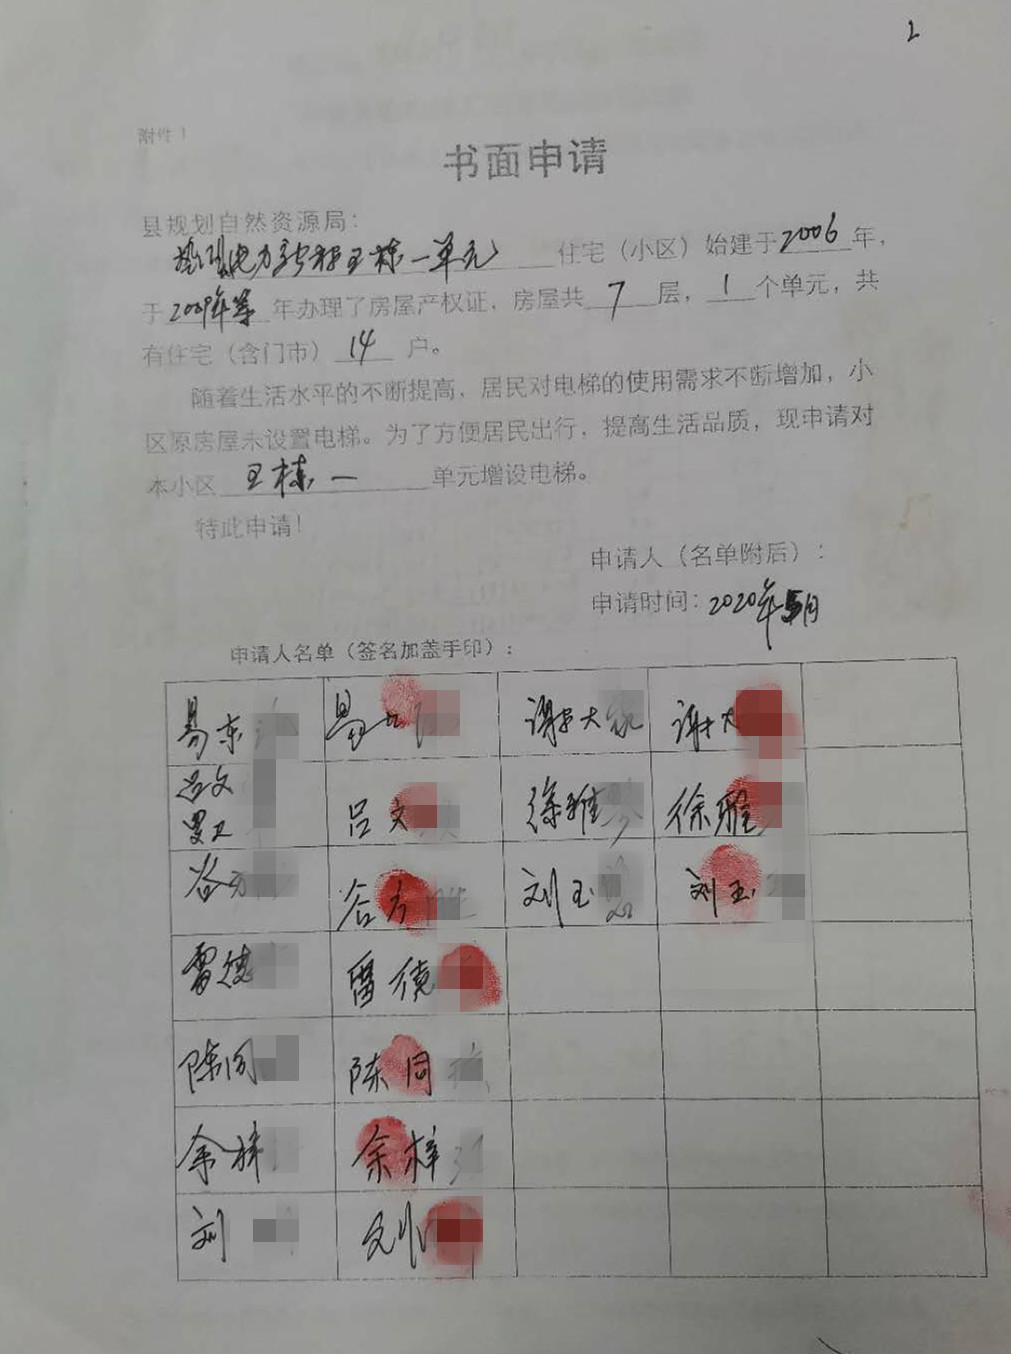 2
附件1
书面申请
县规划自然资源局：
栋一单元 住宅（小区）始建于2006年，
于2009年 年办理了房屋产权证，房屋共7层，1个单元，共
有住宅（含门市）14户。
随着生活水平的不断提高，居民对电梯的使用需求不断增加，小
区原房屋未设置电梯。为了方便居民出行，提高生活品质，现申请对
本小区 栋一 单元增设电梯。
特此申请！
申请人（名单附后）：
申请时间：2020年 月
申请人名单（签名加盖手印）：
易东 易 谢大 谢大
吕文
罗卫 吕文 徐雅 徐雅
谷方 谷方 刘玉 刘玉
雷德 雷德
陈同 陈同
余梓 余梓
刘 刘